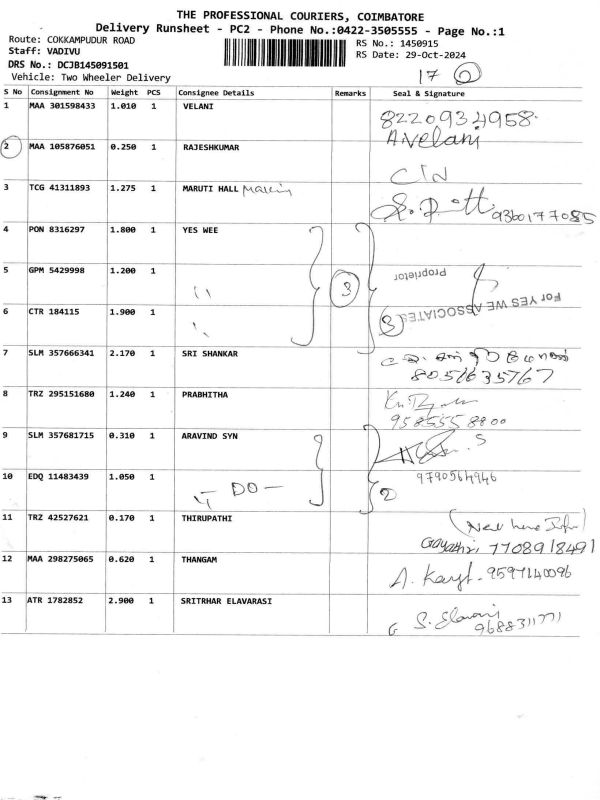 THE PROFESSIONAL COURIERS, COIMBATORE
Delivery Runsheet - PC2 - Phone No.:0422-3505555 - Page No.:1
Route: COKKAMPUDUR ROAD
Staff: VADIVU
DRS No.: DCJB145091501
Vehicle: Two Wheeler Delivery
RS No.: 1450915
RS Date: 29-Oct-2024
17
S No Consignment No Weight PCS Consignee Details Remarks Seal & Signature
1 MAA 301598433 1.010 1 VELANI 8220934958
A Velani
2 MAA 105876051 0.250 1 RAJESHKUMAR
3 TCG 41311893 1.275 1 MARUTI HALL 9360177085
4 PON 8316297 1.800 1 YES WEE
5 GPM 5429998 1.200 1 3
For YES WE ASSOCIATES
Proprietor
6 CTR 184115 1.900 1 3
7 SLM 357666341 2.170 1 SRI SHANKAR
8056635767
8 TRZ 295151680 1.240 1 PRABHITHA
9585558800
9 SLM 357681715 0.310 1 ARAVIND SYN
10 EDQ 11483439 1.050 1 DO 2 9790564946
11 TRZ 42527621 0.170 1 THIRUPATHI
Gayathri 7708918491
12 MAA 298275065 0.620 1 THANGAM 9597140096
13 ATR 1782852 2.900 1 SRITRHAR ELAVARASI S. Elavarasi
9688311771